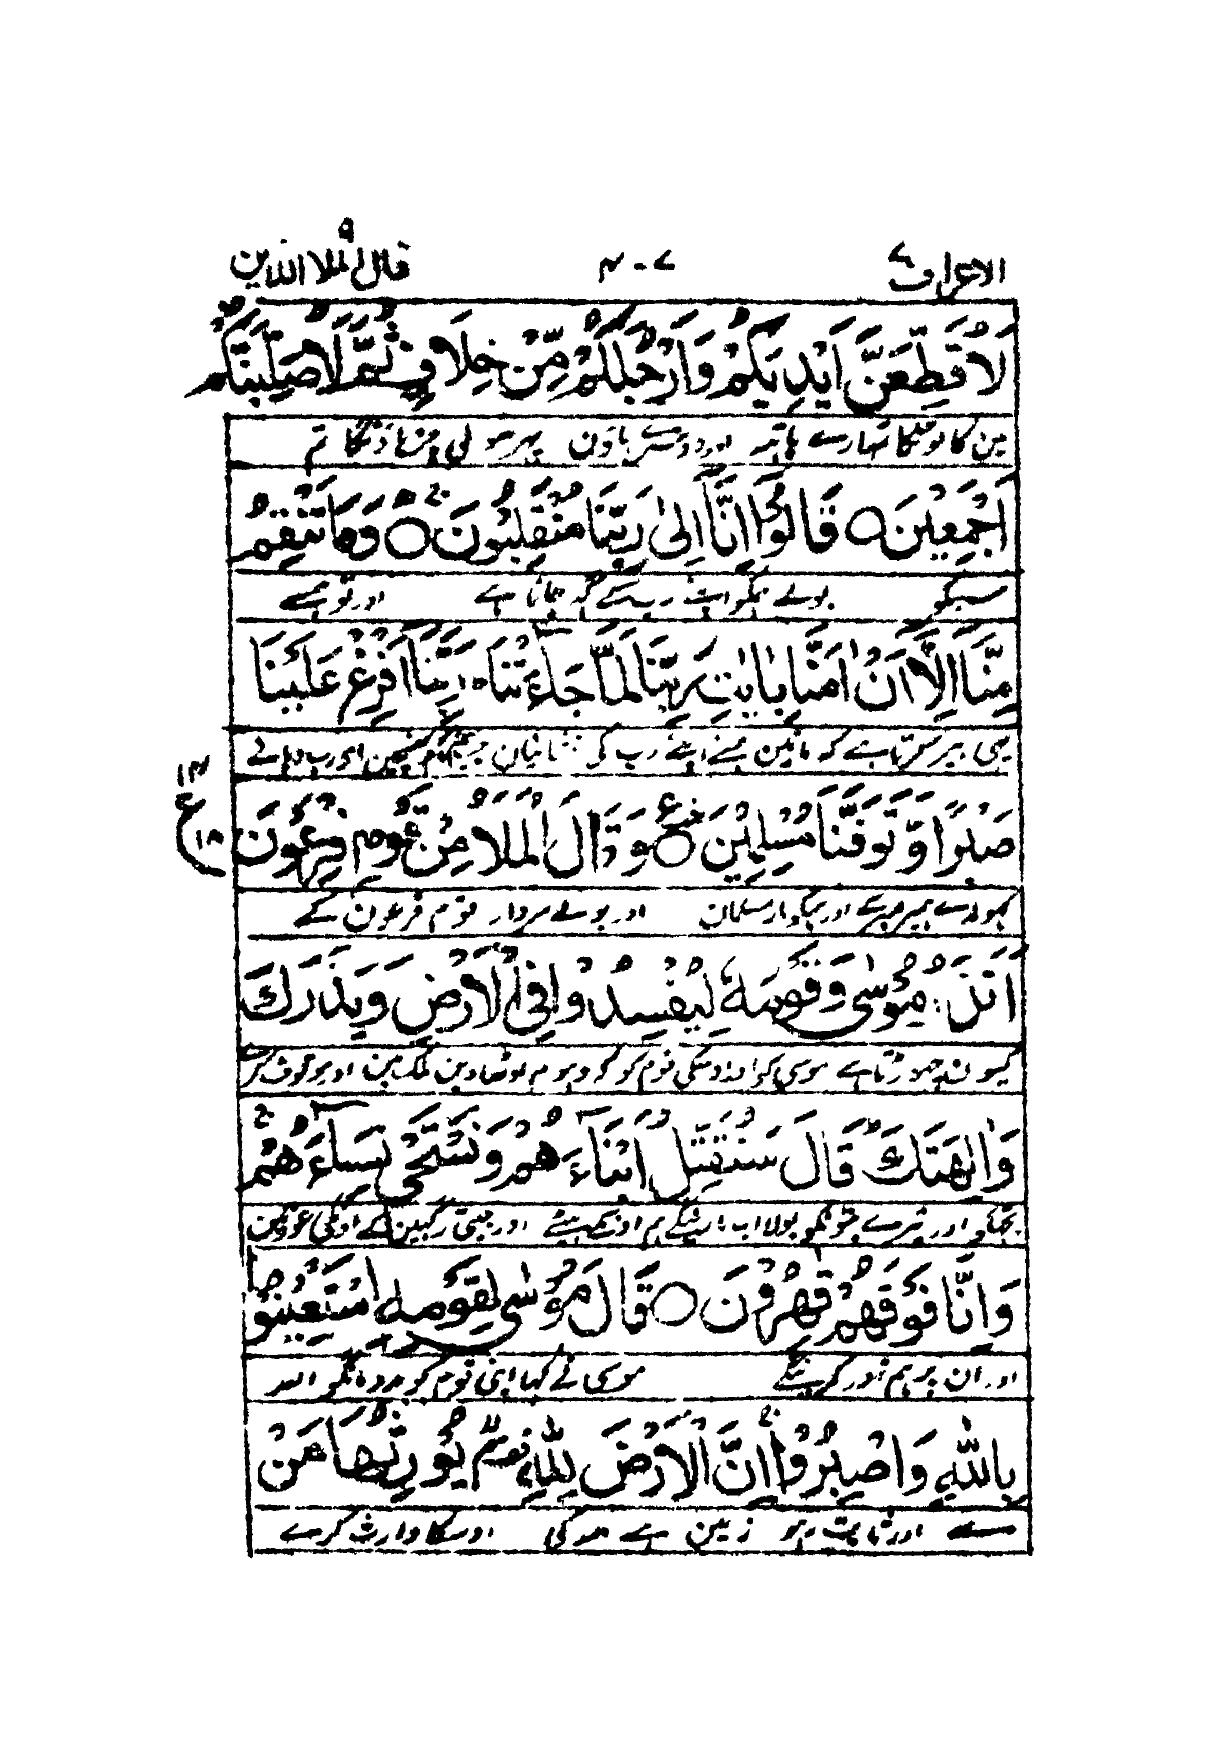 الاعراف ٧ ٢٠٧ قال الملا الذین ٩
لَاُقَطِّعَنَّ اَیْدِیَكُمْ وَاَرْجُلَكُمْ مِّنْ خِلَافٍ ثُمَّ لَاُصَلِّبَنَّكُمْ
مین کاٹونگا تمہارے ہاتھ اور دوسرے پاؤن پھر سولی چڑھاؤنگا تم
اَجْمَعِیْنَ ○ قَالُوْۤا اِنَّاۤ اِلٰى رَبِّنَا مُنْقَلِبُوْنَ ○ وَمَا تَنْقِمُ
سبکو بولے ہمکو اپنے رب کے پاس جانا ہے اور تو ہمسے
مِنَّاۤ اِلَّاۤ اَنْ اٰمَنَّا بِاٰیٰتِ رَبِّنَا لَمَّا جَآءَتْنَا ؕ رَبَّنَاۤ اَفْرِغْ عَلَیْنَا
یہی بیر کرتا ہے کہ مانین ہمنے اپنے رب کی نشانیان جب ہم تک پہنچین اے رب دہانے
صَبْرًا وَّتَوَفَّنَا مُسْلِمِیْنَ ○ ع وَقَالَ الْمَلَاُ مِنْ قَوْمِ فِرْعَوْنَ
کھولدے ہمپر صبر کے اور ہمکو مار مسلمان اور بولے سردار قوم فرعون کے
١٤ ع ١٨
اَتَذَرُ مُوْسٰى وَقَوْمَهٗ لِیُفْسِدُوْا فِی الْاَرْضِ وَیَذَرَكَ
کیون چھوڑتا ہے موسی کو اور اوسکی قوم کو کہ دہوم اوٹھادین ملک مین اور موقوف کر
وَاٰلِهَتَكَ ؕ قَالَ سَنُقَتِّلُ اَبْنَآءَهُمْ وَنَسْتَحْیٖ نِسَآءَهُمْ ۚ
تجکو اور تیرے بتونکو بولا اب مارینگے ہم اونکے بیٹے اور جیتی رکھین گے اونکی عورتین
وَاِنَّا فَوْقَهُمْ قٰهِرُوْنَ ○ قَالَ مُوْسٰى لِقَوْمِهِ اسْتَعِیْنُوْا
اور ان پر ہم زور کرینگے موسی نے کہا اپنی قوم کو مدد مانگو اللہ
بِاللّٰهِ وَاصْبِرُوْا ۚ اِنَّ الْاَرْضَ لِلّٰهِ یُوْرِثُهَا مَنْ
سے اور ثابت رہو زمین ہے اللہ کی اوسکا وارث کرے